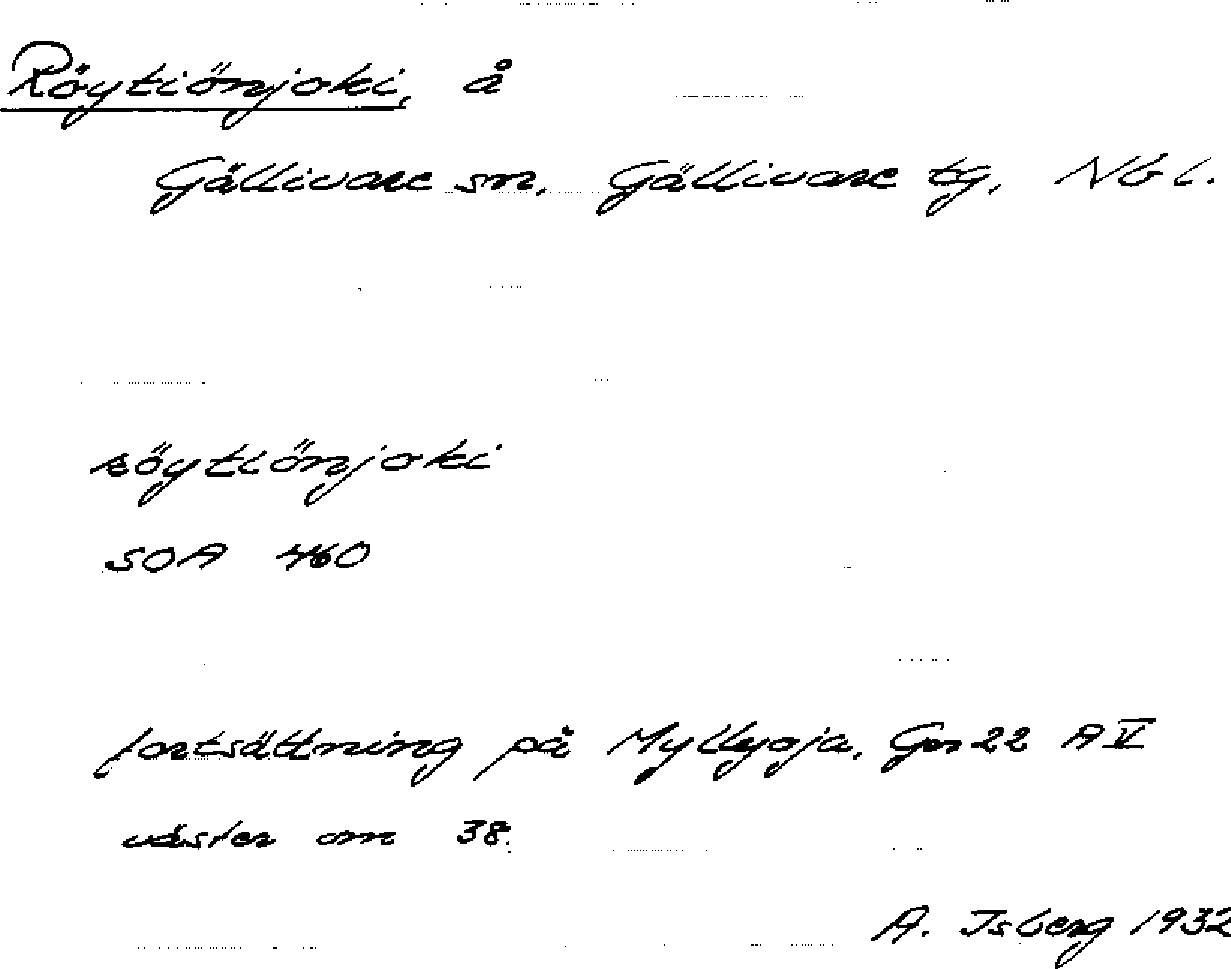 Röytiönjoki, å
Gällivare sn, Gällivare tg, Nb l.
röytiönjoki
SOA 460
fortsättning på Myllyoja, Gn 22 A V
väster om 38.
A. Isberg 1932